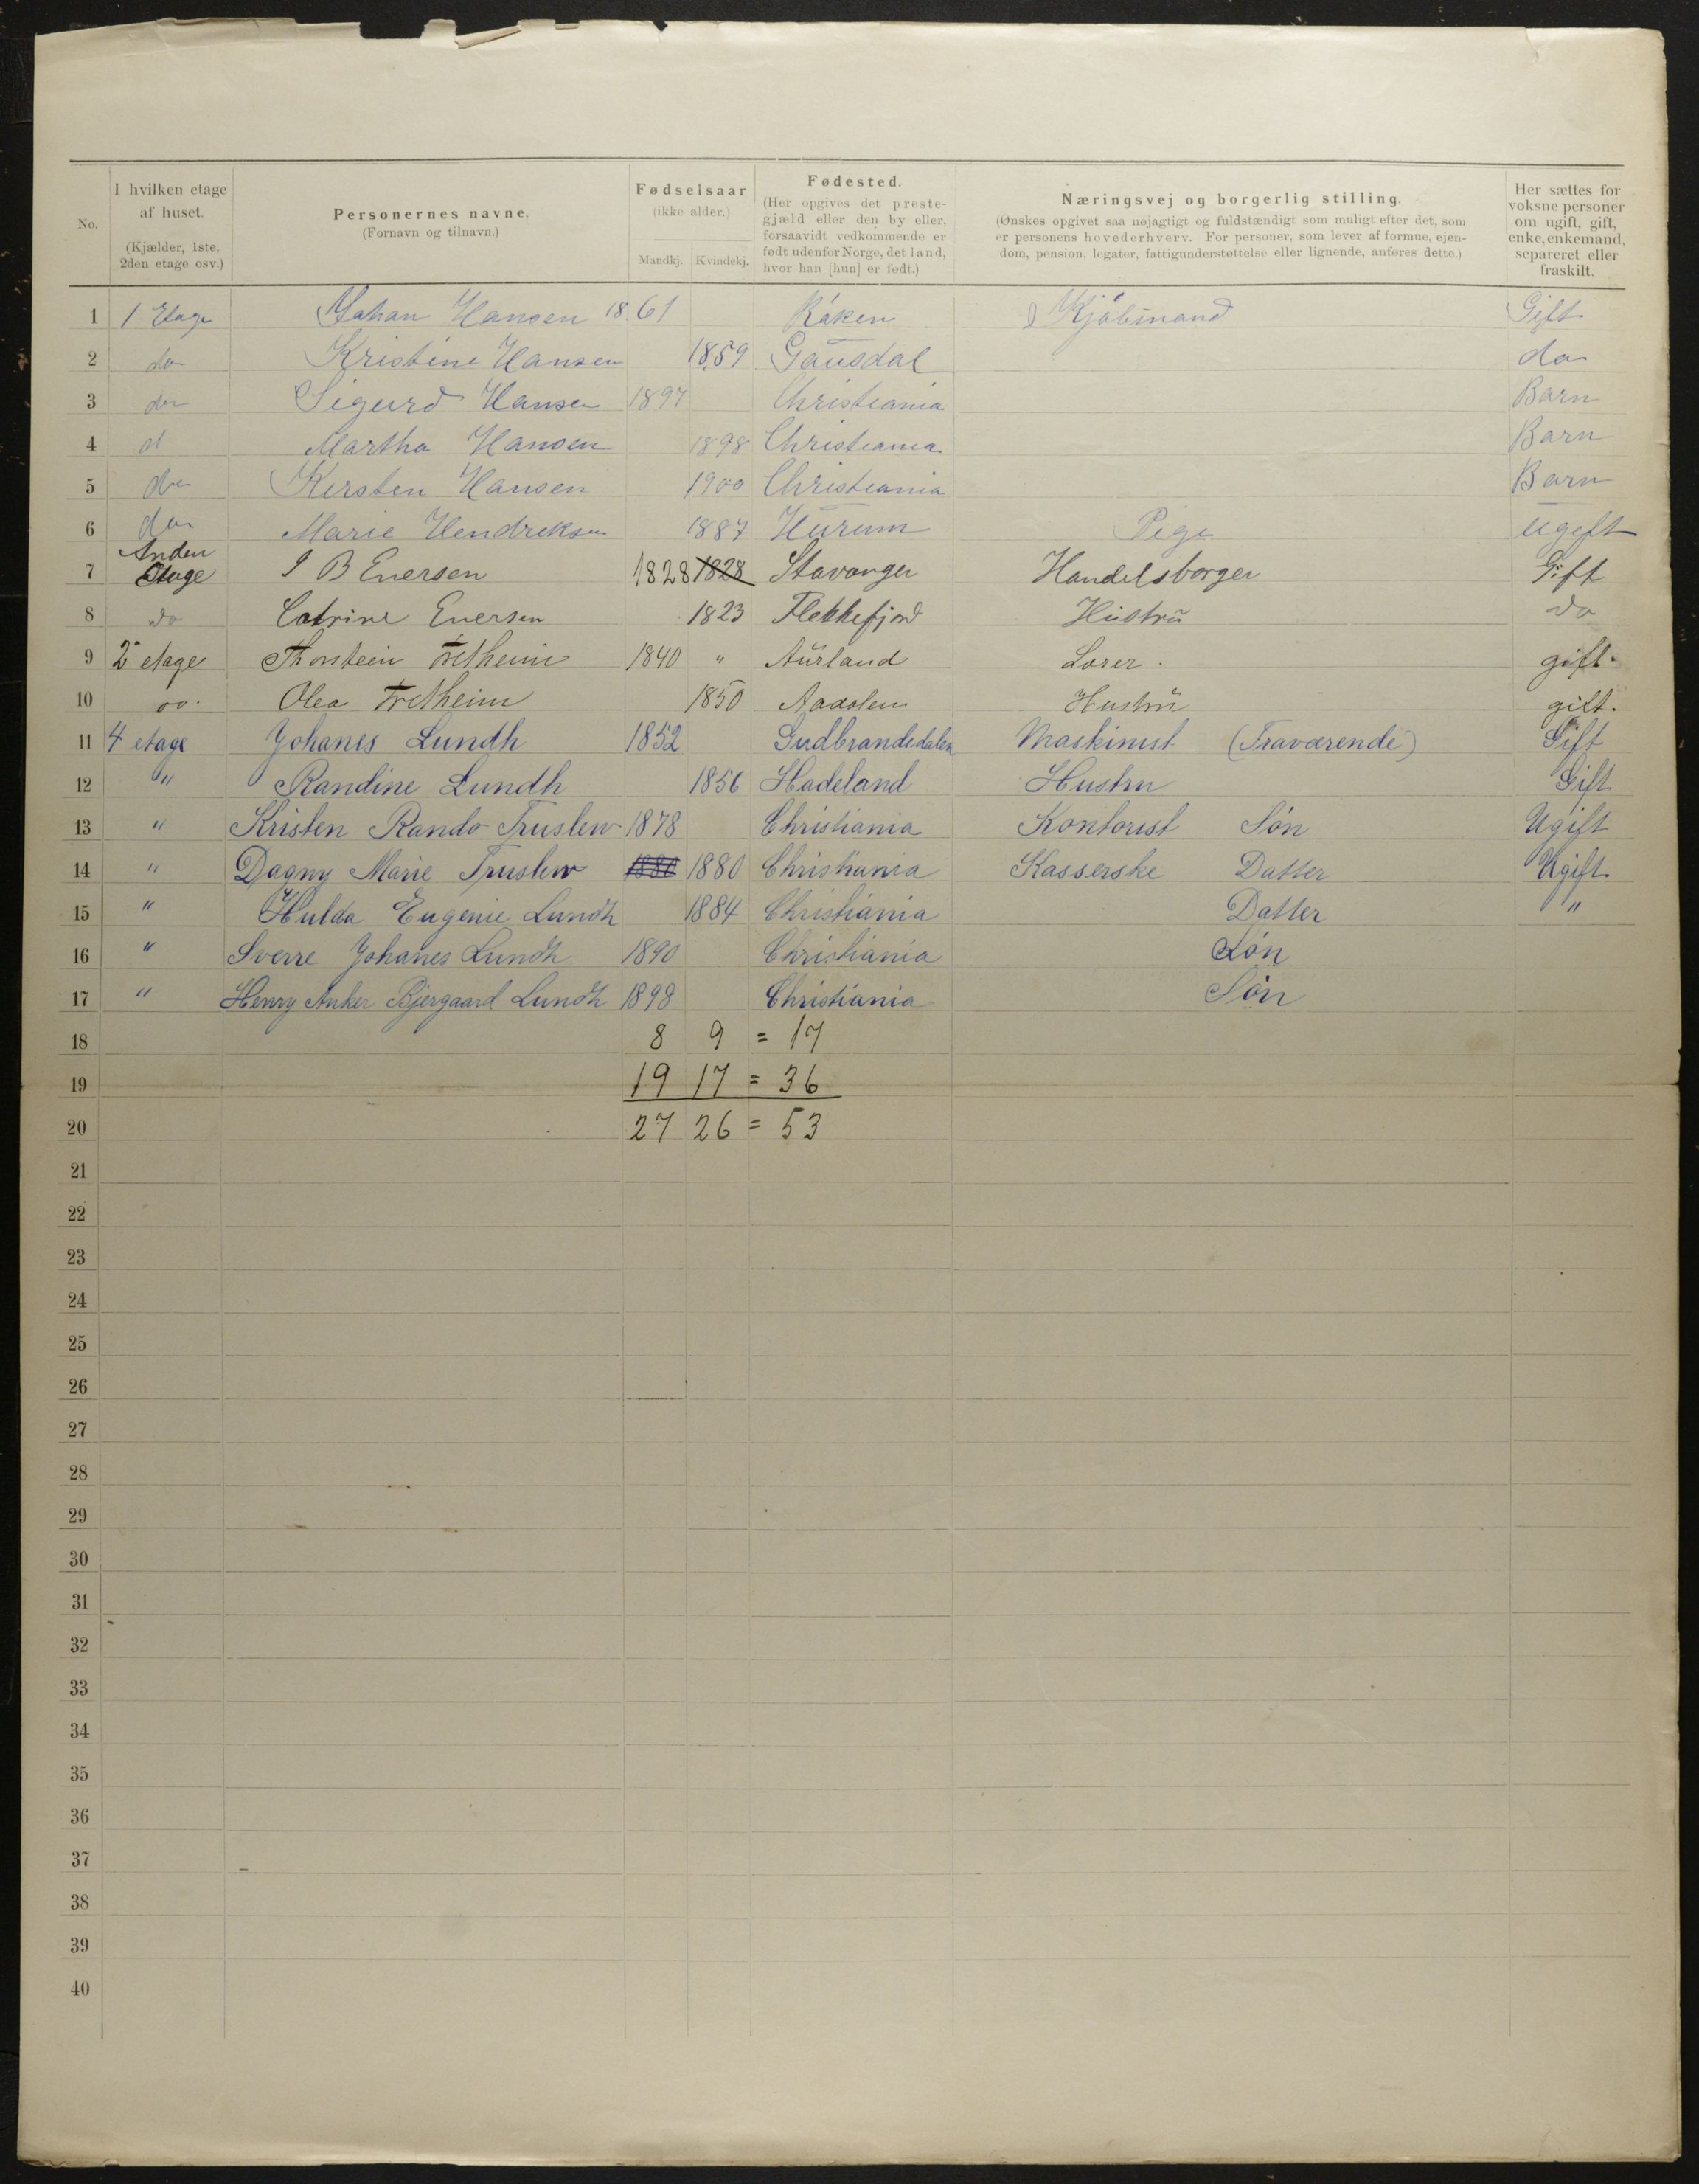 No.
I hvilken etage af huset. (Kjælder, 1ste, 2den etage osv.)
Personernes navne. (Fornavn og tilnavn.)
Fødselsaar (ikke alder.) Mandkj. Kvindekj.
Fødested. (Her opgives det prestegjæld eller den by eller, forsaavidt vedkommende er født udenfor Norge, det land, hvor han [hun] er født.)
Næringsvej og borgerlig stilling. (Ønskes opgivet saa nøjagtigt og fuldstændigt som muligt efter det, som er personens hovederhverv. For personer, som lever af formue, ejendom, pension, legater, fattigunderstøttelse eller lignende, anføres dette.)
Her sættes for voksne personer om ugift, gift, enke, enkemand, separeret eller fraskilt.
1 1 Etage Johan Hansen 1861 Røken Kjøbmand Gift
2 do Kristine Hansen 1859 Gausdal do
3 do Sigurd Hansen 1897 Christiania Barn
4 d Martha Hansen 1898 Christiania Barn
5 do Kirsten Hansen 1900 Christiania Barn
6 do Marie Hendriksen 1887 Hurum Pige Ugift
7 Anden Etage I B Enersen 1828 1828 Stavanger Handelsborger Gift
8 do Catrine Enersen 1823 Flekkefjord Hustru do
9 2 etage Thorstein Fretheim 1840 " Aurland Lærer. gift.
10 do. Olea Fretheim 1850 Aadalen Hustru gift.
11 4 etage Johanes Lundh 1852 Gudbrandsdalen Maskinist (Fraværende) Gift
12 " Randine Lundh 1856 Hadeland Hustru Gift
13 " Kristen Rando Truslew 1878 Christiania Kontorist Søn Ugift
14 " Dagny Marie Truslew 1880 1880 Christiania Kasserske Datter Ugift.
15 " Hulda Eugenie Lundh 1884 Christiania Datter "
16 " Sverre Johanes Lundh 1890 Christiania Søn
17 " Henry Anker Bjergaard Lundh 1898 Christiania Søn
18 8 9 = 17
19 19 17 = 36
20 27 26 = 53
21
22
23
24
25
26
27
28
29
30
31
32
33
34
35
36
37
38
39
40